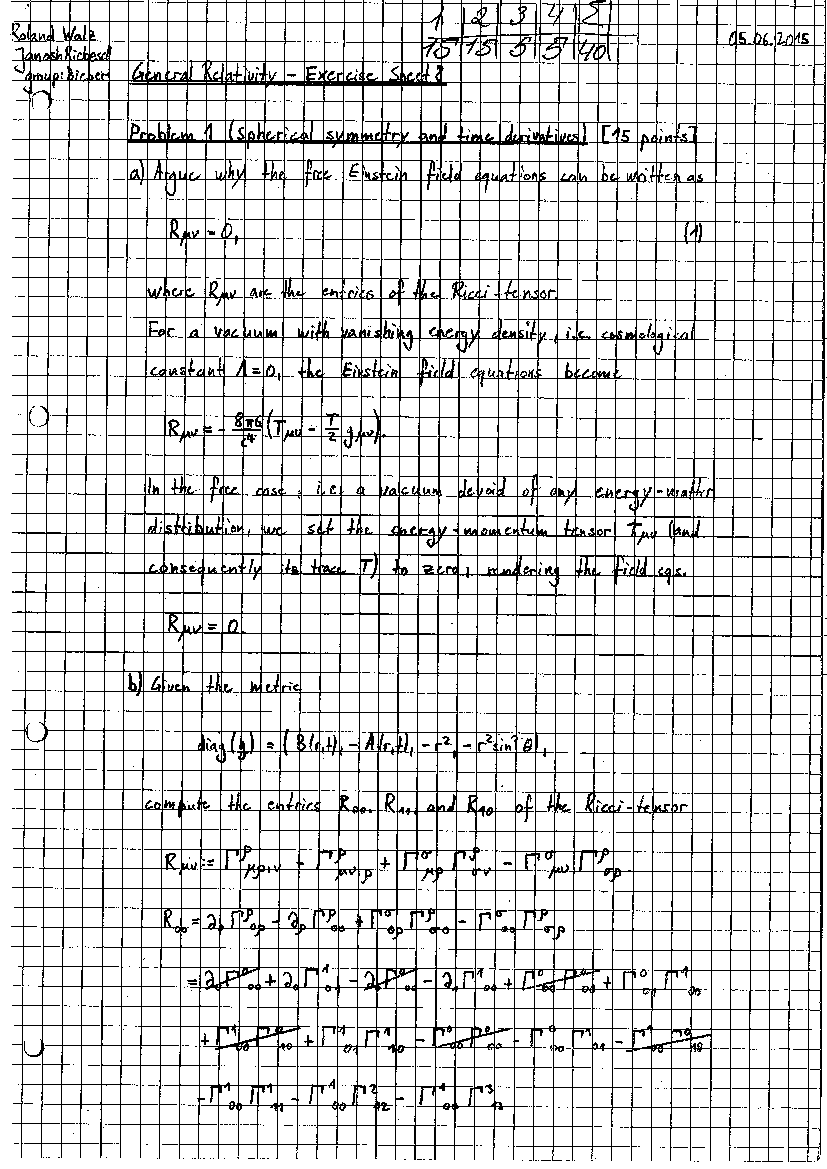 1 2 3 4 Σ
15 15 5 5 40
Roland Walz
Janosh Riebesell
group: Biebert
05.06.2015
General Relativity – Exercise Sheet 8
Problem 1 (Spherical symmetry and time derivatives) [15 points]
a) Argue why the free Einstein field equations can be written as
R_μν = 0, (1)
where R_μν are the entries of the Ricci-tensor.
For a vacuum with vanishing energy density, i.e. cosmological
constant Λ = 0, the Einstein field equations become
R_μν = - 8πG/c⁴ (T_μν - T/2 g_μν).
In the free case, i.e. a vacuum devoid of any energy-matter
distribution, we set the energy-momentum tensor T_μν (and
consequently its trace T) to zero, rendering the field eqs.
R_μν = 0.
b) Given the metric
diag(g) = (B(r,t), - A(r,t), - r², - r² sin²θ),
compute the entries R₀₀, R₁₁, and R₁₀ of the Ricci-tensor
R_μν = Γ^ρ_μρ,ν - Γ^ρ_μν,ρ + Γ^σ_μρ Γ^ρ_σν - Γ^σ_μν Γ^ρ_σρ
R₀₀ = ∂₀Γ^ρ_0ρ - ∂_ρΓ^ρ_00 + Γ^σ_0ρ Γ^ρ_σ0 - Γ^σ_00 Γ^ρ_σρ
= ∂₀Γ^0_00 + ∂₀Γ^1_01 - ∂₀Γ^0_00 - ∂₁Γ^1_00 + Γ^0_00 Γ^0_00 + Γ^0_01 Γ^1_00
+ Γ^1_00 Γ^0_10 + Γ^1_01 Γ^1_10 - Γ^0_00 Γ^0_00 - Γ^0_00 Γ^1_01 - Γ^1_00 Γ^0_10
- Γ^1_00 Γ^1_11 - Γ^1_00 Γ^2_12 - Γ^1_00 Γ^3_13